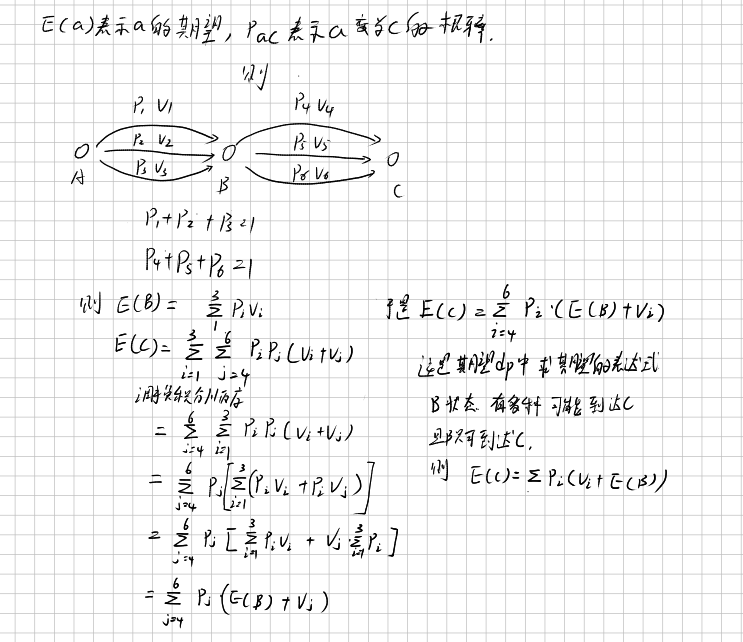 E(a)表示a的期望, Pac表示a变为c的概率.
则
P₁ V₁
P₂ V₂
P₃ V₃
P₄ V₄
P₅ V₅
P₆ V₆
A
B
C
P₁+P₂+P₃=1
P₄+P₅+P₆=1
则 E(B)= Σ_1^3 PᵢVᵢ
E(C)= Σ_{i=1}^3 Σ_{j=4}^6 PᵢPⱼ(Vᵢ+Vⱼ)
= Σ_{j=4}^6 Σ_{i=1}^3 PᵢPⱼ(Vᵢ+Vⱼ)
= Σ_{j=4}^6 Pⱼ[Σ_{i=1}^3(PᵢVᵢ+PᵢVⱼ)]
= Σ_{j=4}^6 Pⱼ[Σ_{i=1}^3 PᵢVᵢ + Vⱼ·Σ_{i=1}^3 Pᵢ]
= Σ_{j=4}^6 Pⱼ(E(B)+Vⱼ)
于是 E(C)=Σ_{i=4}^6 Pᵢ·(E(B)+Vᵢ)
这是期望dp中求期望的表达式
B状态 有多种可能到达C
且B只可到达C,
则 E(C)=ΣPᵢ(Vᵢ+E(B))